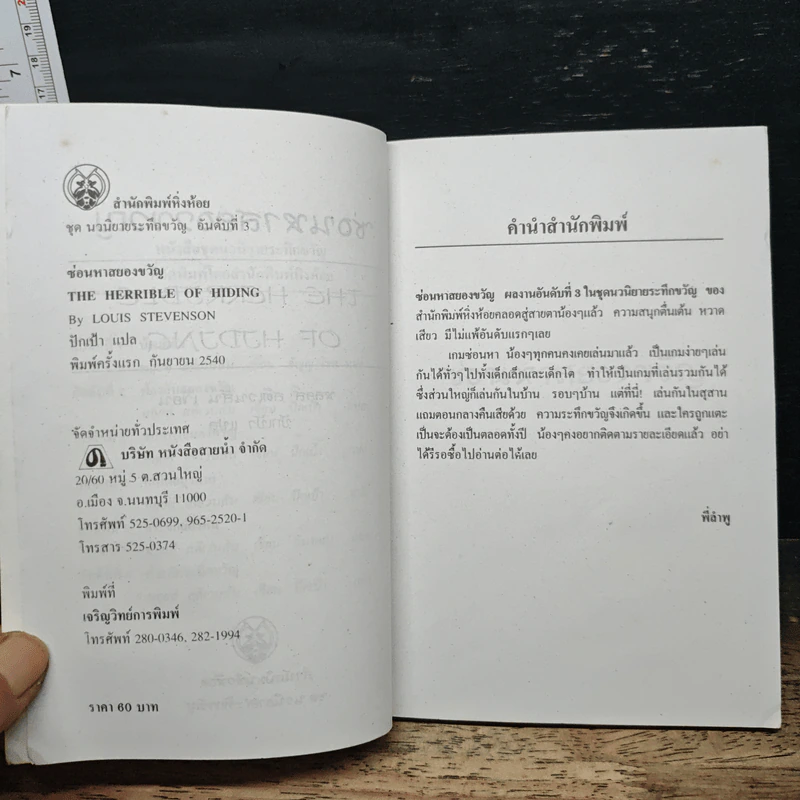 สำนักพิมพ์หิ่งห้อย
ชุด นวนิยายระทึกขวัญ อันดับที่ 3
ซ่อนหาสยองขวัญ
THE HERRIBLE OF HIDING
By LOUIS STEVENSON
ปักเป้า แปล
พิมพ์ครั้งแรก กันยายน 2540
จัดจำหน่ายทั่วประเทศ
บริษัท หนังสือสายน้ำ จำกัด
20/60 หมู่ 5 ต.สวนใหญ่
อ.เมือง จ.นนทบุรี 11000
โทรศัพท์ 525-0699, 965-2520-1
โทรสาร 525-0374
พิมพ์ที่
เจริญวิทย์การพิมพ์
โทรศัพท์ 280-0346, 282-1994
ราคา 60 บาท
คำนำสำนักพิมพ์
ซ่อนหาสยองขวัญ ผลงานอันดับที่ 3 ในชุดนวนิยายระทึกขวัญ ของ
สำนักพิมพ์หิ่งห้อยคลอดสู่สายตาน้องๆแล้ว ความสนุกตื่นเต้น หวาด
เสียว มีไม่แพ้อันดับแรกๆเลย
เกมซ่อนหา น้องๆทุกคนคงเคยเล่นมาแล้ว เป็นเกมง่ายๆเล่น
กันได้ทั่วๆไปทั้งเด็กเล็กและเด็กโต ทำให้เป็นเกมที่เล่นรวมกันได้
ซึ่งส่วนใหญ่ก็เล่นกันในบ้าน รอบๆบ้าน แต่ที่นี่! เล่นกันในสุสาน
แถมตอนกลางคืนเสียด้วย ความระทึกขวัญจึงเกิดขึ้น และใครถูกแตะ
เป็นจะต้องเป็นตลอดทั้งปี น้องๆคงอยากติดตามรายละเอียดแล้ว อย่า
ได้รีรอซื้อไปอ่านต่อได้เลย
พี่ลำพู
17
18
19
7